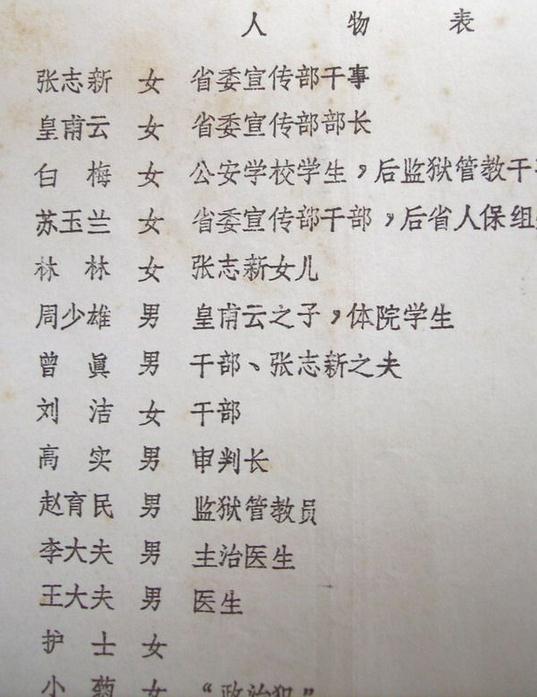 人 物 表
张志新 女 省委宣传部干事
皇甫云 女 省委宣传部部长
白 梅 女 公安学校学生，后监狱管教干
苏玉兰 女 省委宣传部干部，后省人保组
林 林 女 张志新女儿
周少雄 男 皇甫云之子，体院学生
曾 真 男 干部、张志新之夫
刘 洁 女 干部
高 实 男 审判长
赵育民 男 监狱管教员
李大夫 男 主治医生
王大夫 男 医生
护 士 女
小 菊 女 “政治犯”